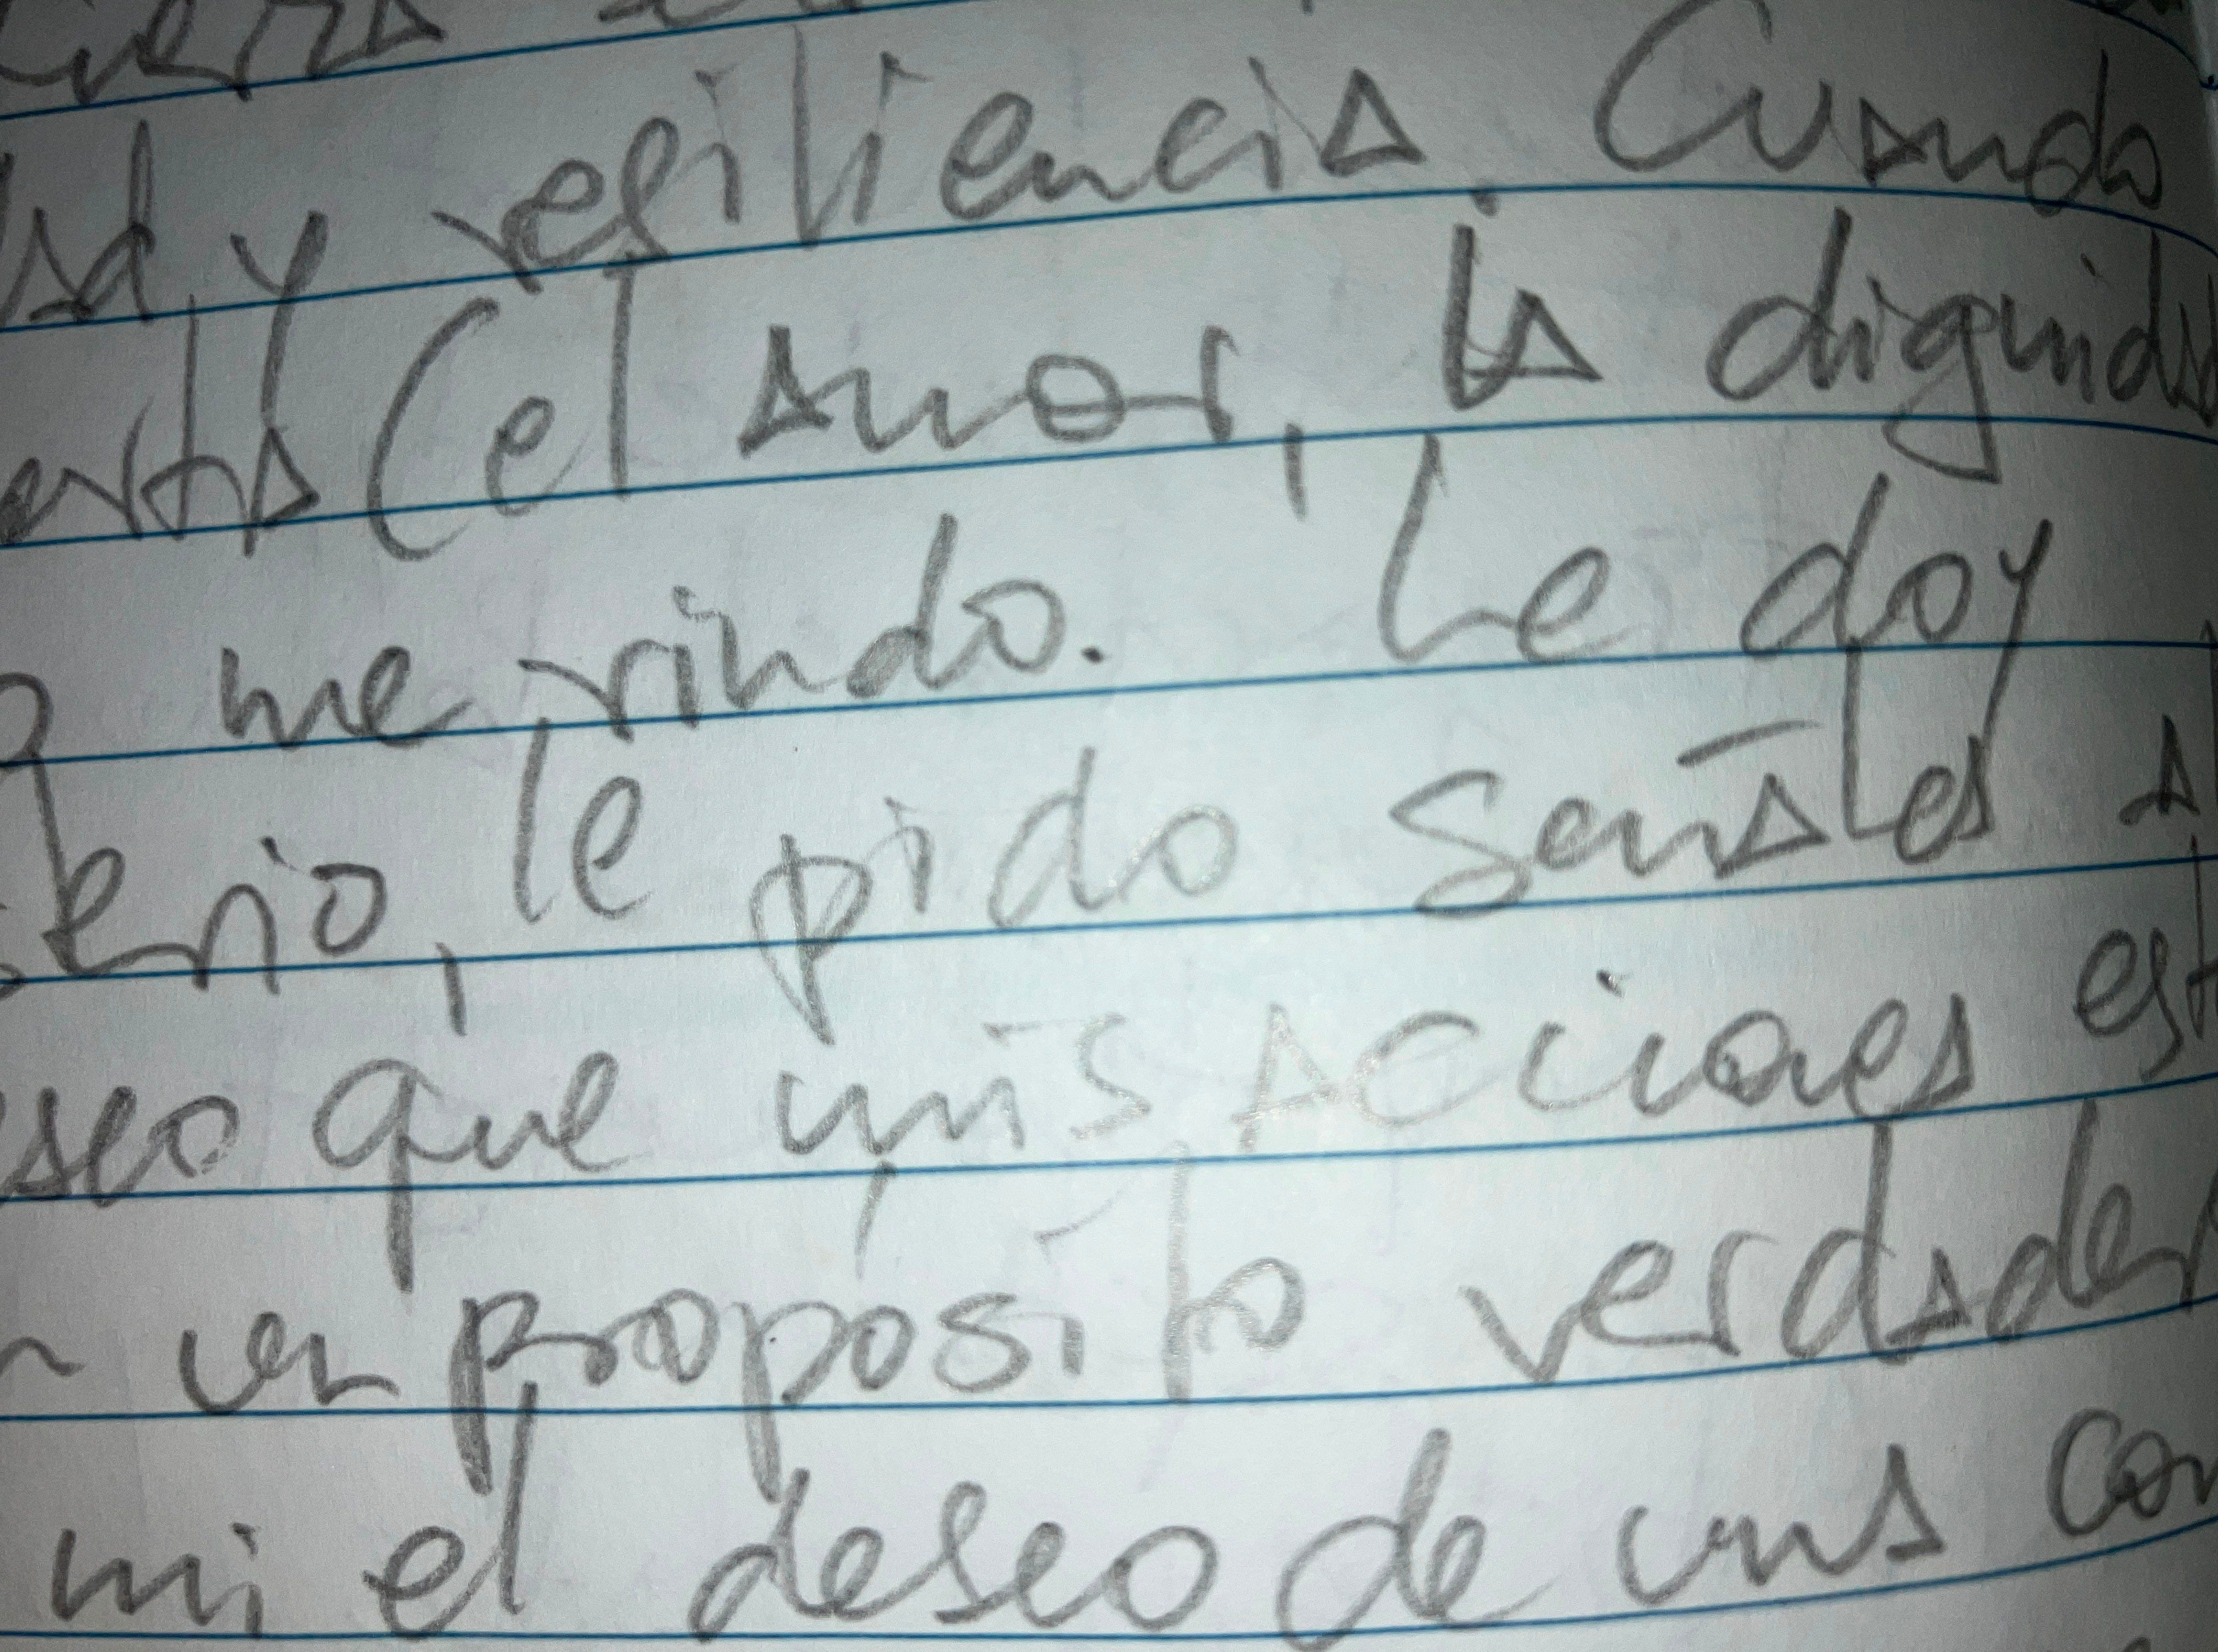 ad y resiliencia. Cuando
esta (el amor, la dignida
me rindo. Le doy
terio, le pido señales a
seo que mis acciones est
un propósito verdader
mi el deseo de una con